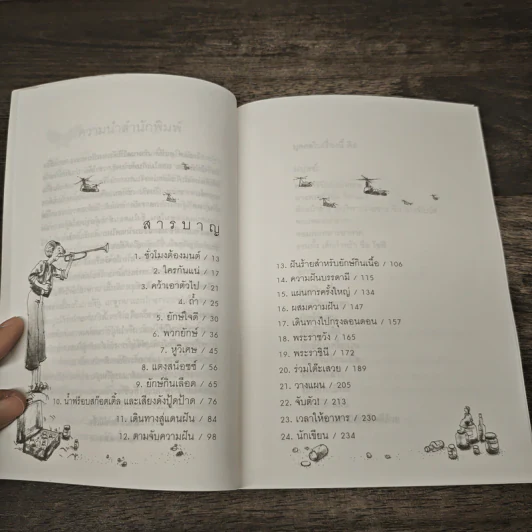 สารบาญ
1. ชั่วโมงต้องมนต์ / 13
2. ใครกันแน่ / 17
3. คว้าเอาตัวไป / 21
4. ถ้ำ / 25
5. ยักษ์ใจดี / 30
6. พวกยักษ์ / 36
7. หูวิเศษ / 45
8. แตงสน็อซซ์ / 56
9. ยักษ์กินเลือด / 65
10. น้ำฟร็อบสก๊อตเติ้ล และเสียงดังปู้ดป้าด / 76
11. เดินทางสู่แดนฝัน / 84
12. ตามจับความฝัน / 98
13. ฝันร้ายสำหรับยักษ์กินเนื้อ / 106
14. ความฝันบรรดามี / 115
15. แผนการครั้งใหญ่ / 134
16. ผสมความฝัน / 147
17. เดินทางไปกรุงลอนดอน / 157
18. พระราชวัง / 165
19. พระราชินี / 172
20. ร่วมโต๊ะเสวย / 189
21. วางแผน / 205
22. จับตัว! / 213
23. เวลาให้อาหาร / 230
24. นักเขียน / 234